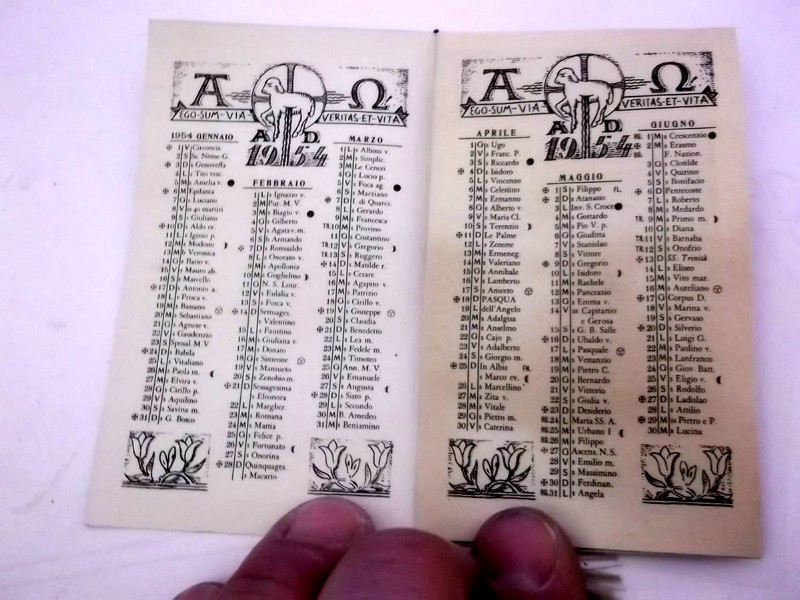 Α Ω
EGO·SUM·VIA VERITAS·ET·VITA
A D
1954
1954 GENNAIO
✠ 1 V Circoncis.
2 S Ss. Nome G.
✠ 3 D s Genoveffa
4 L s Tito vesc.
5 M s Amelia v.
✠ 6 M Epifania
7 G s Luciano
8 V ss 40 martiri
9 S s Giuliano
✠ 10 D s Aldo er.
11 L s Igino p.
12 M s Modesto
13 M s Veronica
14 G s Ilario v.
15 V s Mauro ab.
16 S s Marcello
✠ 17 D s Antonio a.
18 L s Prisca v.
19 M s Bassano
20 M s Sebastiano
21 G s Agnese v.
22 V s Gaudenzio
23 S Sposal. M. V.
✠ 24 D s Babila
25 L s Vitaliano
26 M s Paola m.
27 M s Elvira v.
28 G s Cirillo p.
29 V s Aquilino
30 S s Savina m.
✠ 31 D s G. Bosco
FEBBRAIO
1 L s Ignazio v.
2 M Pur. M. V.
3 M s Biagio v.
4 G s Gilberto
5 V s Agata v. m.
6 S s Armando
✠ 7 D s Romualdo
8 L s Onorato v.
9 M s Apollonia
10 M s Guglielmo
11 G N. S. Lour.
12 V s Eulalia v.
13 S s Fosca v.
✠ 14 D Settuages.
s Valentino
15 L s Faustino
16 M s Giuliana v.
17 M s Donato
18 G s Simeone
19 V s Mansueto
20 S s Zenobio m.
✠ 21 D Sessagesima
s Eleonora
22 L s Margher.
23 M s Romana
24 M s Mattia
25 G s Felice p.
26 V s Fortunato
27 S s Onorina
✠ 28 D Quinquages.
s Macario
MARZO
1 L s Albino v.
2 M s Simplic.
3 M Le Ceneri
4 G s Lucio p.
5 V s Foca ag.
6 S s Marziano
✠ 7 D I. di Quares.
8 L s Gerardo
9 M s Francesca
TR. 10 M s Provino
11 G s Costantino
TR. 12 V s Gregorio
TR. 13 S s Ruggero
✠ 14 D s Matilde r.
15 L s Cesare
16 M s Agapito v.
17 M s Patrizio
18 G s Cirillo v.
✠ 19 V s Giuseppe
20 S s Claudia
✠ 21 D s Benedetto
22 L s Lea m.
23 M s Fedele m.
24 M s Timoteo
25 G Ann. M. V.
26 V s Emanuele
27 S s Augusta
✠ 28 D s Sisto p.
29 L s Secondo
30 M B. Amedeo
31 M s Beniamino
Α Ω
EGO·SUM·VIA VERITAS·ET·VITA
A D
1954
APRILE
1 G s Ugo
2 V s Franc. P.
3 S s Riccardo
✠ 4 D s Isidoro
5 L s Vincenzo
6 M s Celestino
7 M s Ermanno
8 G s Alberto v.
9 V s Maria Cl.
10 S s Terenzio
✠ 11 D Le Palme
12 L s Zenone
13 M s Ermeneg.
14 M s Valeriano
15 G s Annibale
16 V s Lamberto
17 S s Aniceto
✠ 18 D PASQUA
19 L dell'Angelo
20 M s Adalgisa
21 M s Anselmo
22 G s Cajo p.
23 V s Adalberto
24 S s Giorgio m.
✠ 25 D In Albis FN.
s Marco ev.
26 L s Marcellino
27 M s Zita v.
28 M s Vitale
29 G s Pietro m.
30 V s Caterina
MAGGIO
✠ 1 S s Filippo FL.
✠ 2 D s Atanasio
3 L Inv. S. Croce
4 M s Gottardo
5 M s Pio V. p.
6 G s Giuditta
7 V s Stanislao
8 S s Vittore
✠ 9 D s Gregorio
10 L s Isidoro
11 M s Rachele
12 M s Pancrazio
13 G s Emma v.
14 V ss Capitanio
e Gerosa
15 S s G. B. Salle
✠ 16 D s Ubaldo v.
17 L s Pasquale
18 M s Venanzio
19 M s Pietro C.
20 G s Bernardo
21 V s Vittorio
22 S s Giulia v.
✠ 23 D s Desiderio
RG. 24 L Maria SS. A.
RG. 25 M s Urbano I
RG. 26 M s Filippo
✠ 27 G Ascens. N. S.
28 V s Emilio m.
29 S s Massimino
✠ 30 D s Ferdinan.
RG. 31 L s Angela
GIUGNO
RG. 1 M s Crescenzio
✠ 2 M s Erasmo
RG. F. Nazion.
3 G s Clotilde
4 V s Quirino
5 S s Bonifacio
✠ 6 D Pentecoste
7 L s Roberto
8 M s Medardo
TR. 9 M s Primo m.
10 G s Diana
TR. 11 V s Barnaba
TR. 12 S s Onofrio
✠ 13 D SS. Trinità
14 L s Eliseo
15 M s Vito mar.
16 M s Aureliano
✠ 17 G Corpus D.
18 V s Marina v.
19 S s Gervaso
✠ 20 D s Silverio
21 L s Luigi G.
22 M s Paolino v.
23 M s Lanfranco
24 G s Giov. Batt.
25 V s Eligio v.
26 S s Rodolfo
✠ 27 D s Ladislao
28 L s Attilio
✠ 29 M ss Pietro e P.
30 M s Lucina